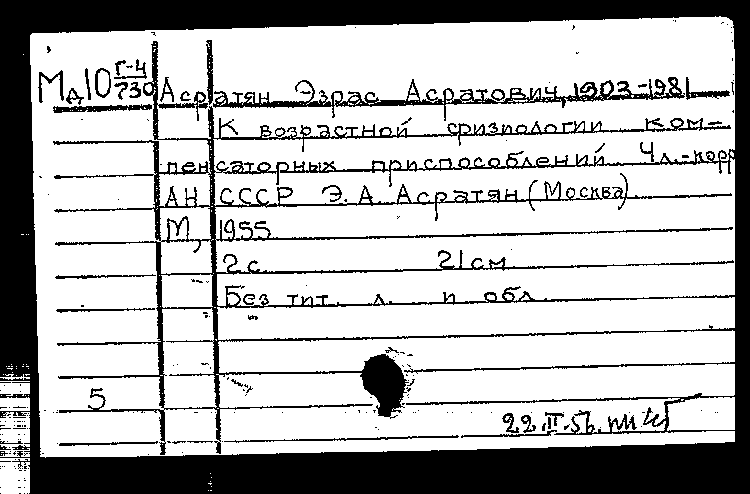 Мд10 Г-4/730 Асратян Эзрас Асратович, 1903-1981
К возрастной физиологии ком-
пенсаторных приспособлений Чл.-корр
АН СССР Э. А. Асратян (Москва)
М, 1955
2с. 21см
Без тит. л. и обл.
5
22.II.56.